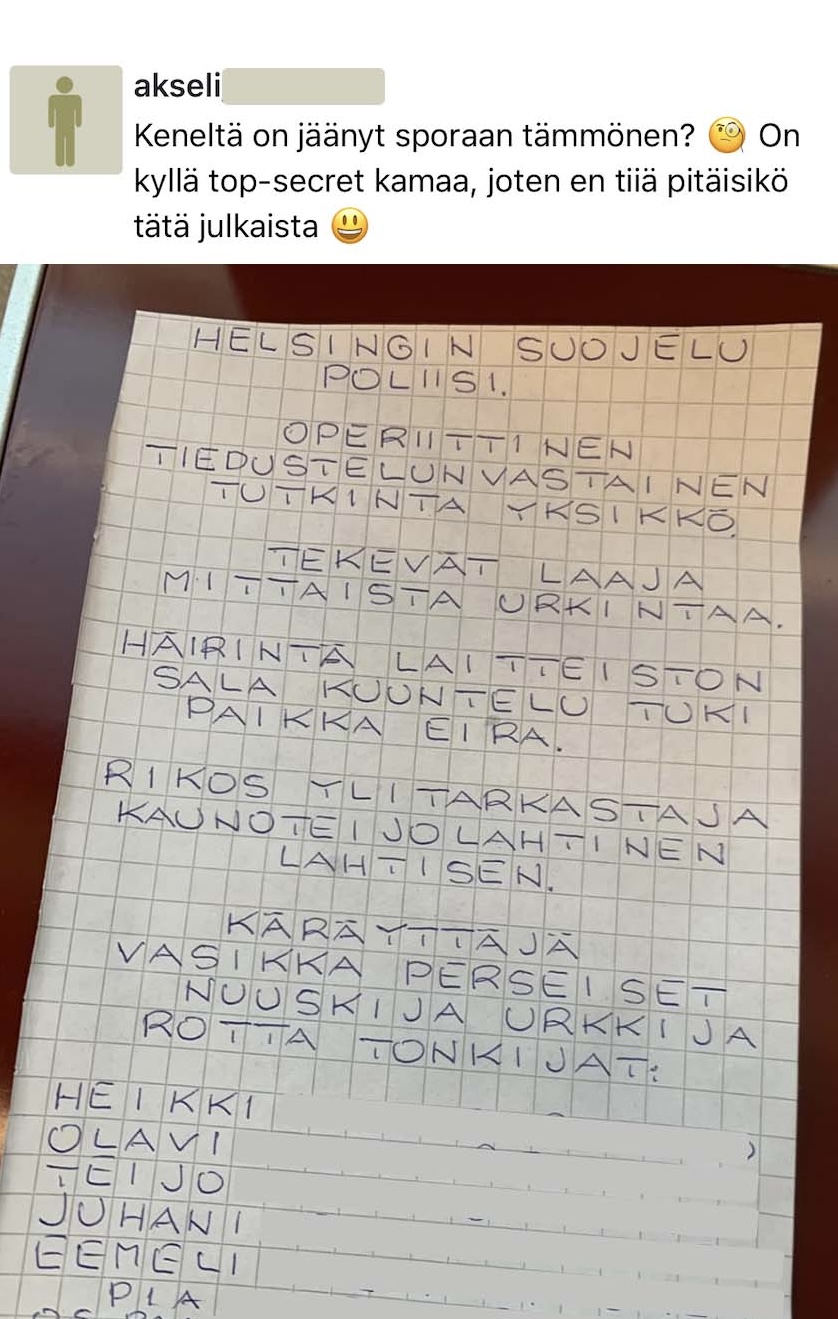 akseli
Keneltä on jäänyt sporaan tämmönen? 🧐 On
kyllä top-secret kamaa, joten en tiiä pitäisikö
tätä julkaista 😃
HELSINGIN SUOJELU
POLIISI.
OPERIITTINEN
TIEDUSTELUNVASTAINEN
TUTKINTA YKSIKKÖ
TEKEVÄT LAAJA
MITTAISTA URKINTAA.
HÄIRINTÄ LAITTEISTON
SALA KUUNTELU TUKI
PAIKKA EIRA.
RIKOS YLITARKASTAJA
KAUNOTEIJOLAHTINEN
LAHTISEN.
KÄRÄYTTÄJÄ
VASIKKA PERSEISET
NUUSKIJA URKKIJA
ROTTA TONKIJAT:
HEIKKI
OLAVI
TEIJO
JUHANI
EEMELI
PIA